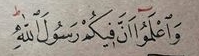 وَاعْلَمُوٓا اَنَّ فٖيكُمْ رَسُولَ اللّٰهِ